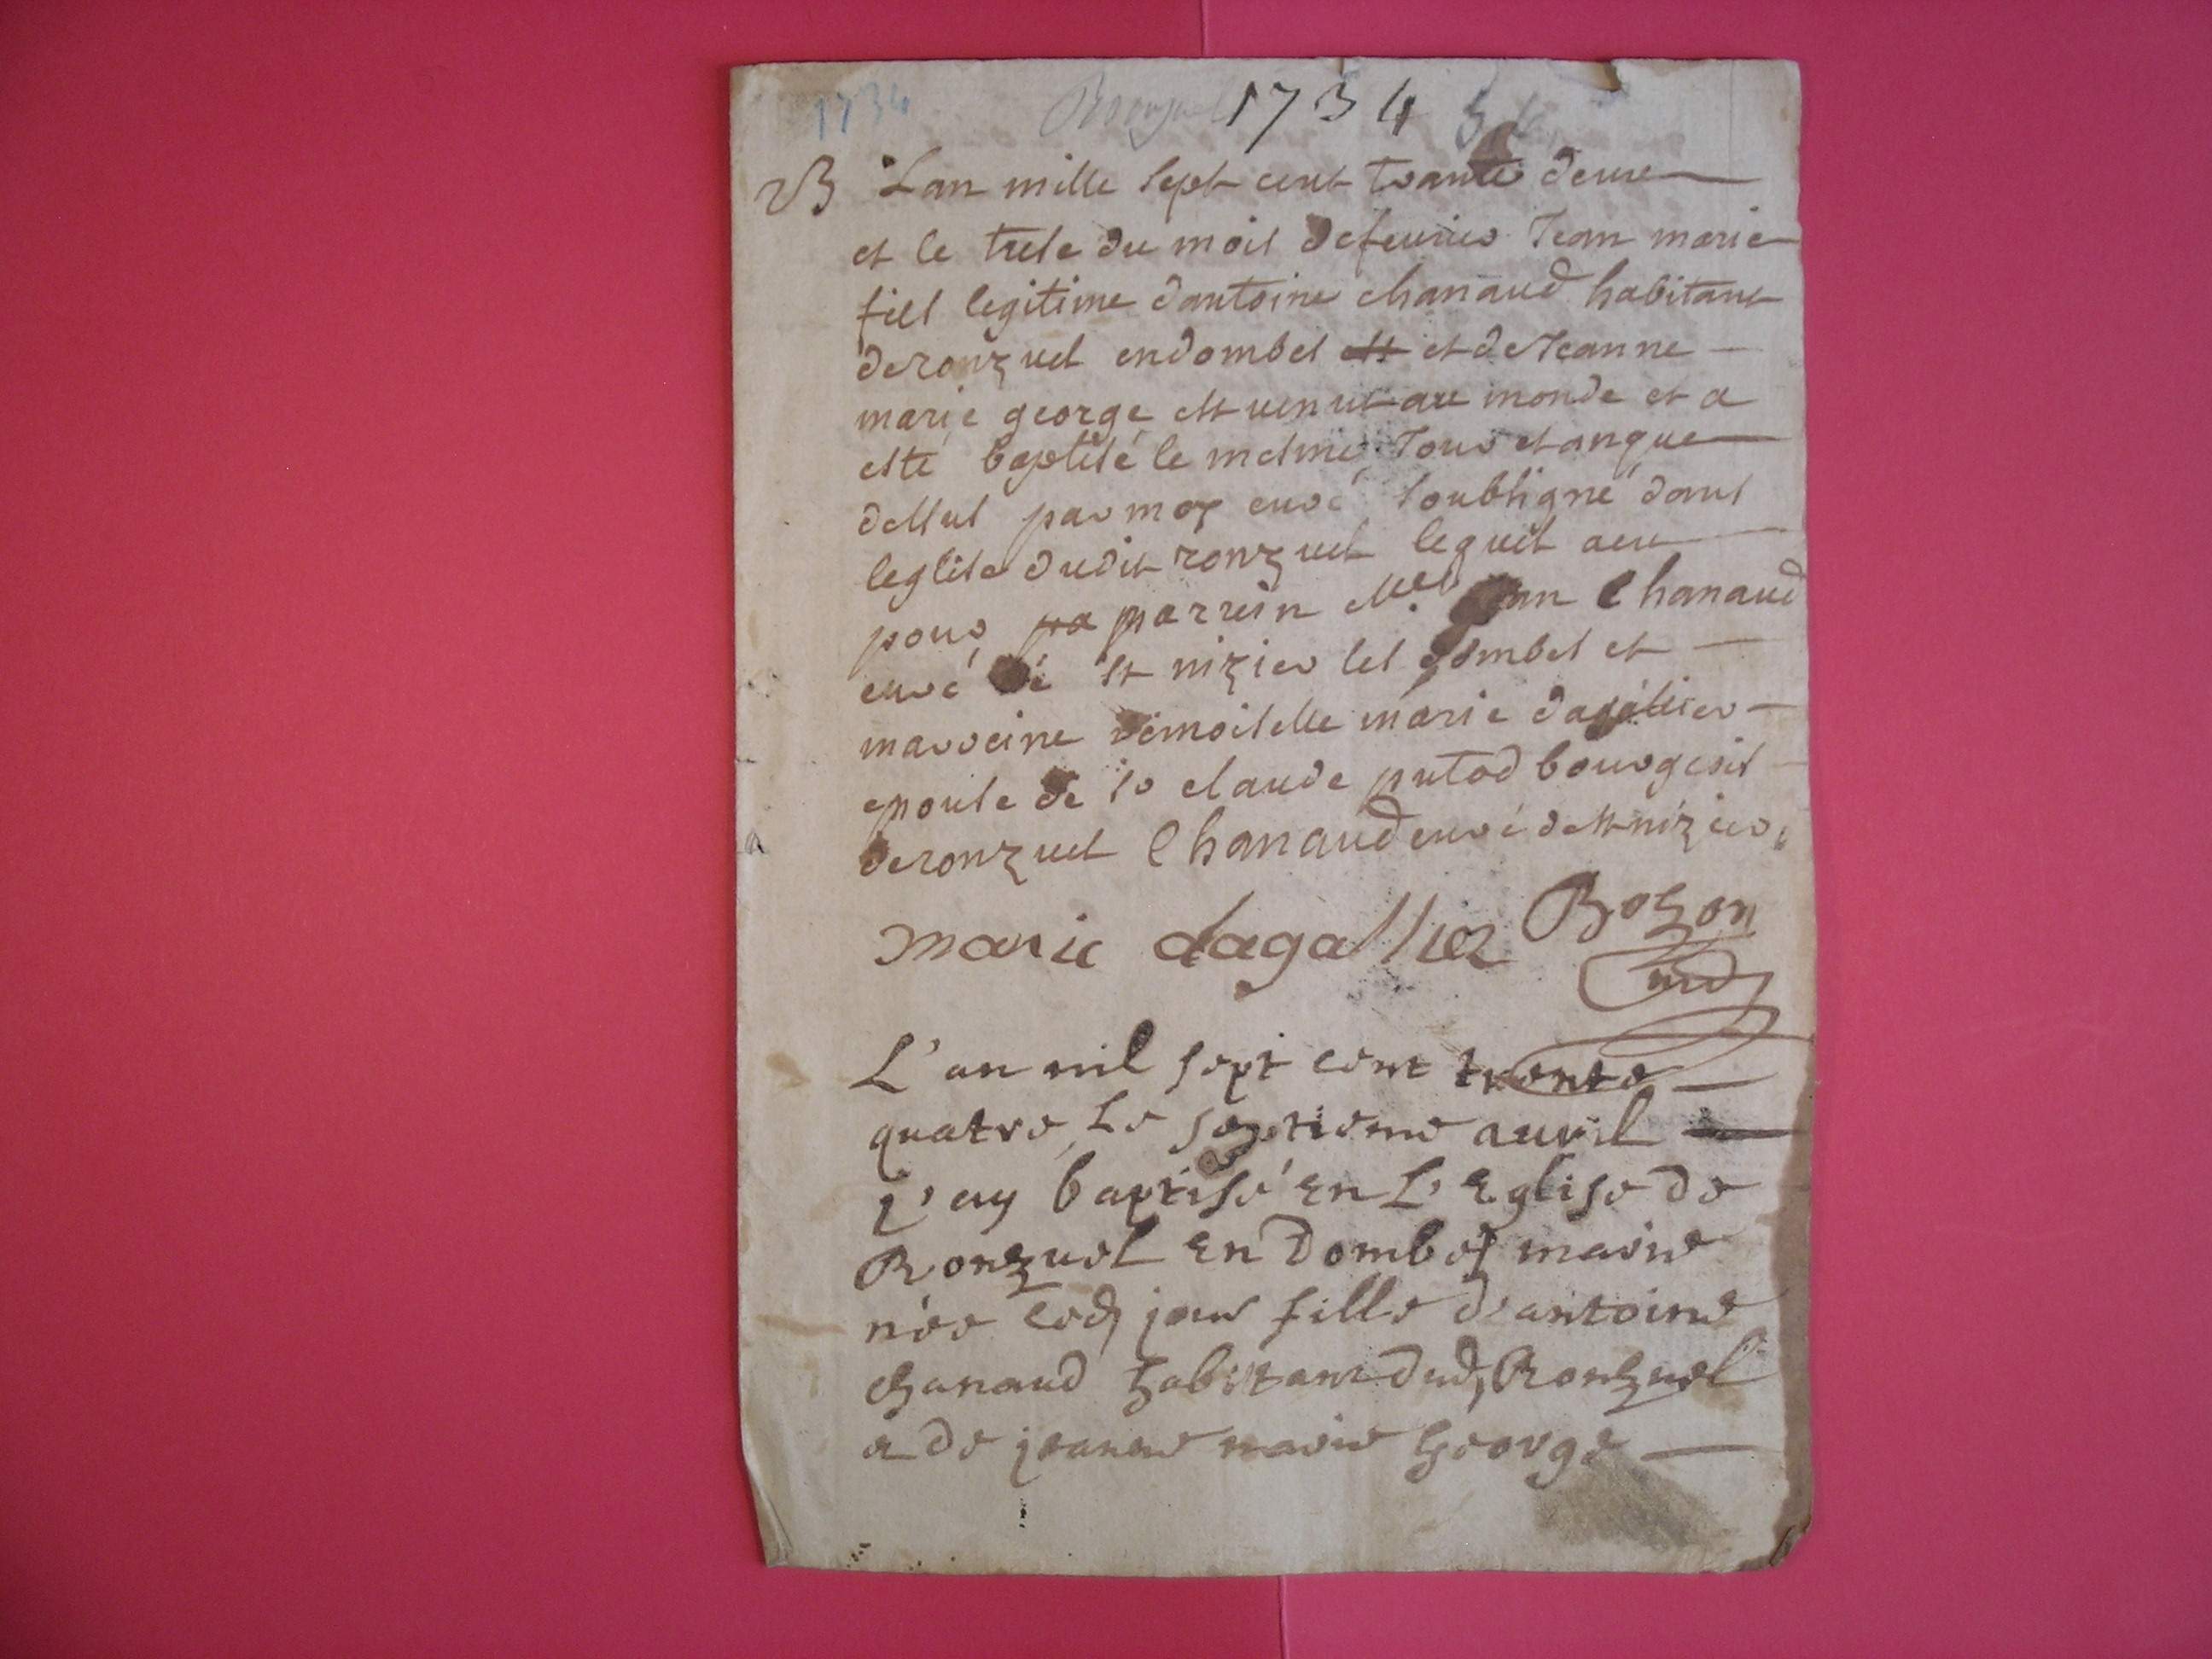 1734 Ronzuel 1734
B Lan mille sept cent trante deux
et le trese du mois defeurier Jean marie
fils legitime dantoine chanaud habitant
deronzuel endombes et deJeanne
marie george est uenut au monde et a
esté baptisé le mesme Jour et anque
dessus par moy curé soubsigné dans
leglise dudit ronzuel lequel aeu
pour parrein Mre Jean Chanaud
curé de st nizier les dombes et
marreine demoiselle marie dagallier
epouse de sr claude putod bourgeois
deronzuel Chanaud curé de st nizier
marie dagallier Bozon
curé
L'an mil sept cent trente
quatre Le septieme auril
J'ay baptisé En L'Eglise de
Ronzuel En Dombes marie
née led jour fille d'antoine
chanaud habitant dud Ronzuel
& de jeanne marie George